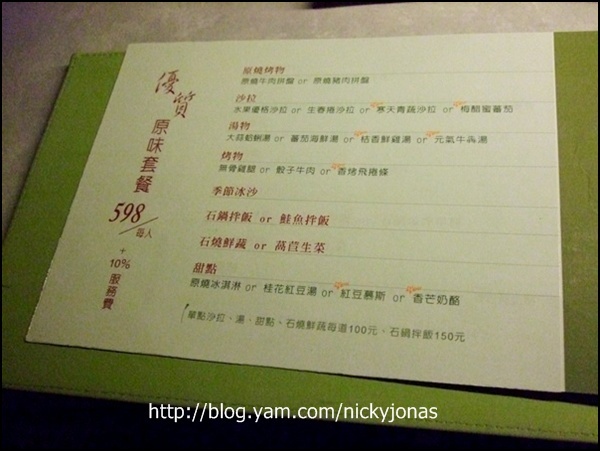 優質
原味套餐
598/每人
+
10%
服務費
原燒烤物
原燒牛肉拼盤 or 原燒豬肉拼盤
沙拉
水果優格沙拉 or 生春捲沙拉 or 寒天青蔬沙拉 or 梅醋蜜蕃茄
湯物
大蒜蛤蜊湯 or 蕃茄海鮮湯 or 桔香鮮雞湯 or 元氣牛犇湯
烤物
無骨雞腿 or 骰子牛肉 or 香烤飛捲條
季節冰沙
石鍋拌飯 or 鮭魚拌飯
石燒鮮蔬 or 萵苣生菜
甜點
原燒冰淇淋 or 桂花紅豆湯 or 紅豆慕斯 or 香芒奶酪
單點沙拉、湯、甜點、石燒鮮蔬每道100元、石鍋拌飯150元
http://blog.yam.com/nickyjonas